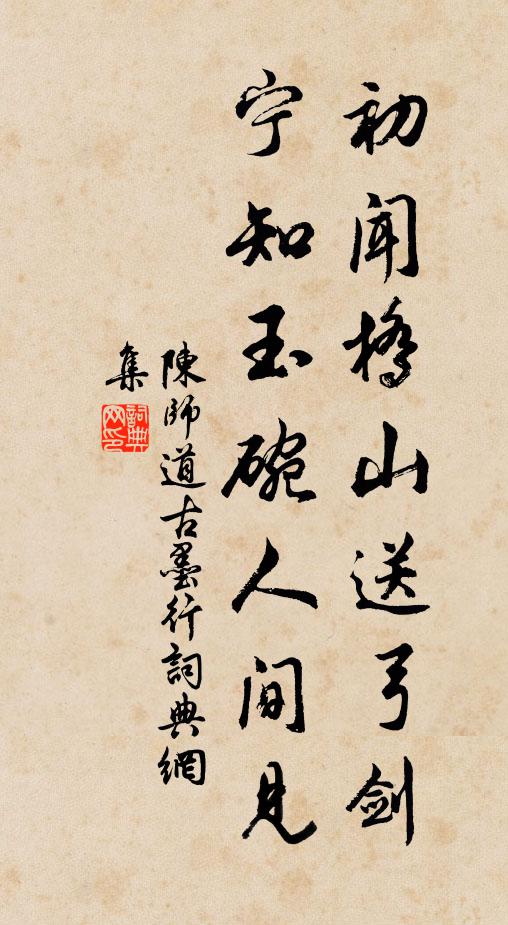 初闻橋山送弓剑
宁知玉碗人间見
陳師道古墨行詞典網
集
詞典
网印